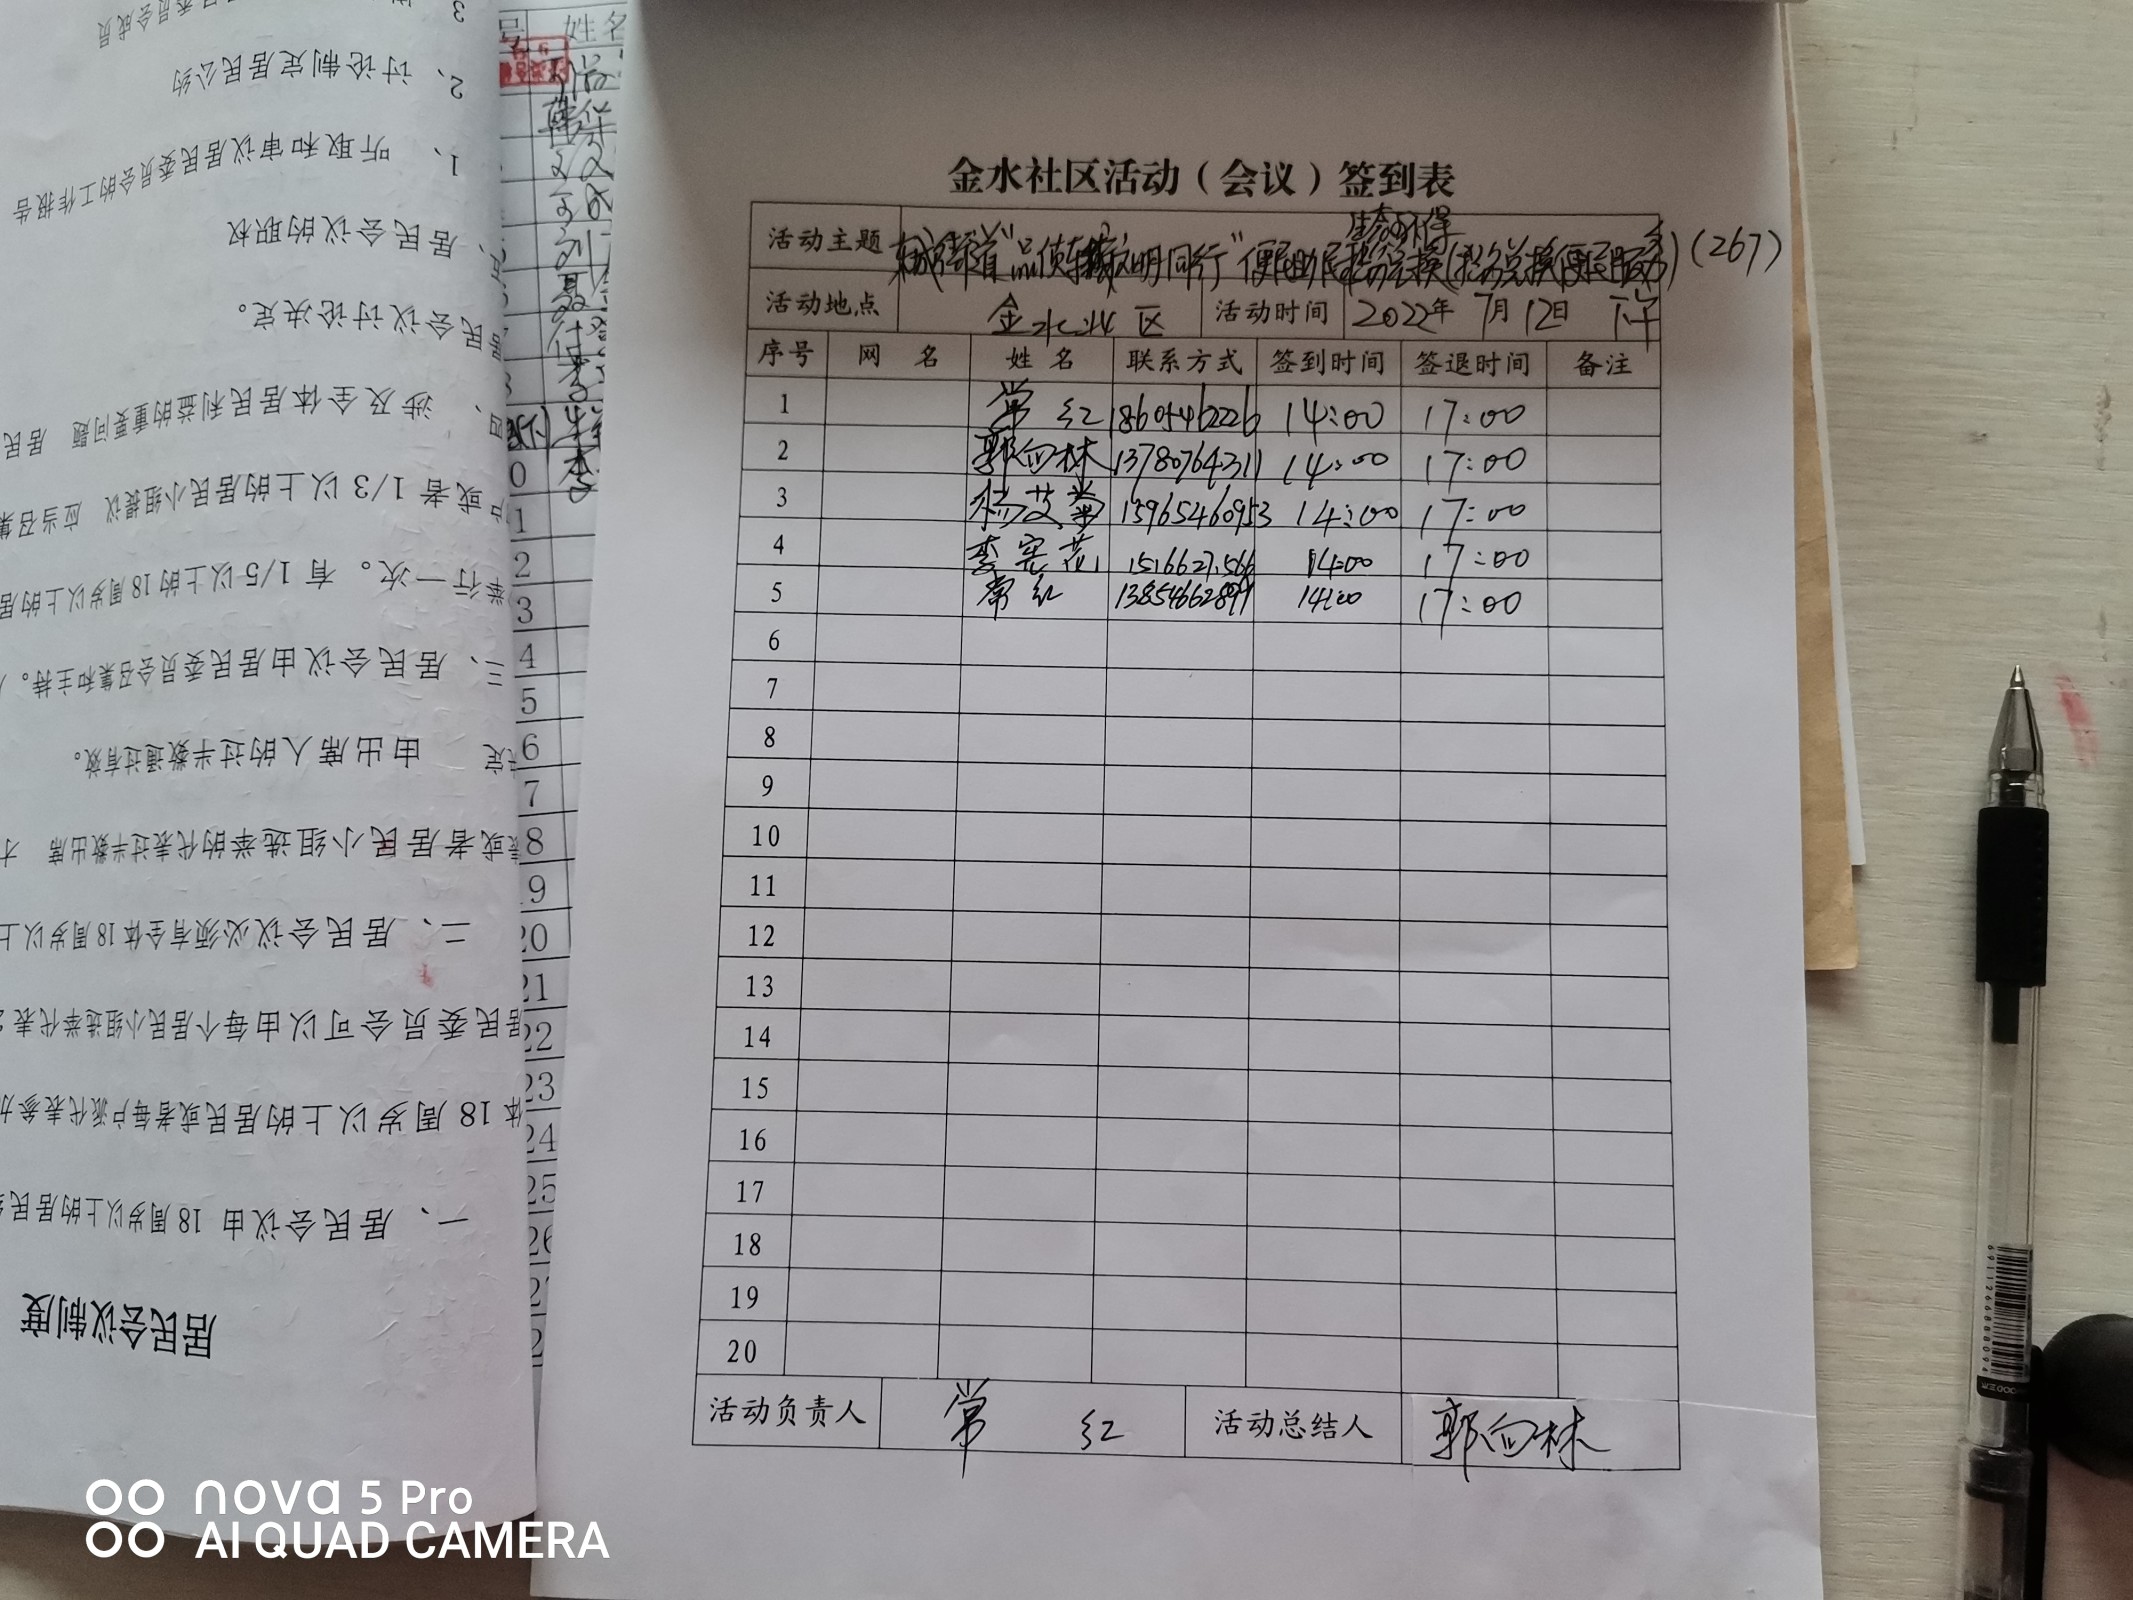 金水社区活动（会议）签到表
活动主题 东城街道"品质 文明同行"便民助民 生态环保 积分兑换(积分兑换便民服务) (267)
活动地点 金水社区 活动时间 2022年 7月12日 下午
序号 网 名 姓 名 联系方式 签到时间 签退时间 备注
1 常 红 18605462226 14:00 17:00
2 郭向林 13780764311 14:00 17:00
3 杨艾菊 15965460953 14:00 17:00
4 李 宪 花 14:00 17:00
5 常红 14:00 17:00
6
7
8
9
10
11
12
13
14
15
16
17
18
19
20
活动负责人 常 红 活动总结人 郭向林
居民会议制度
一、居民会议由 18 周岁以上的居民
体 18 周岁以上的居民或者每户派代表参加
居民委员会可以由每个居民小组选举代表 2
二、居民会议必须有全体 18 周岁以上
或者居民小组选举的代表过半数出席 才
定 由出席人的过半数通过有效。
三、居民会议由居民委员会召集和主持。
举行一次。有 1/5 以上的 18 周岁以上的居
户或者 1/3 以上的居民小组提议 应当召集
四、涉及全体居民利益的重要问题 居民
居民会议讨论决定。
、居民会议的职权
1、听取和审议居民委员会的工作报告
2、讨论制定居民公约
3、
号 姓名
0
1
2
3
4
5
6
7
8
19
20
21
22
23
24
25
26
nova 5 Pro
AI QUAD CAMERA